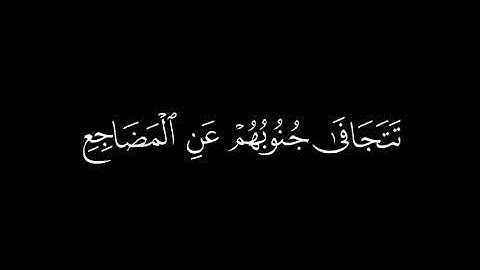 تَتَجَافَىٰ جُنُوبُهُمۡ عَنِ ٱلۡمَضَاجِعِ